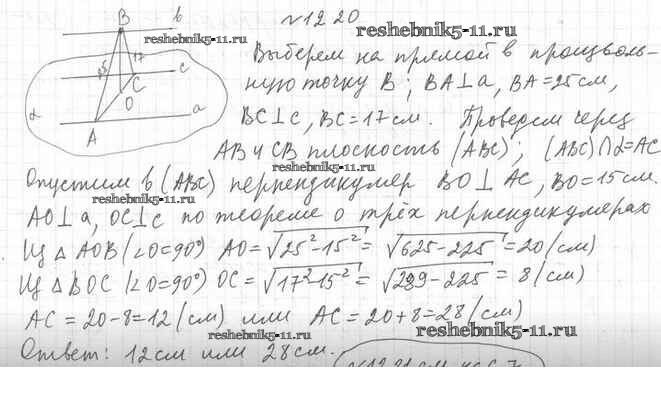 №12 20
reshebnik5-11.ru
B
b
reshebnik5-11.ru
Выберем на прямой в произволь-
25
17
C
c
ную точку B; BA⊥a, BA=25см,
O
α
a
A
BC⊥c, BC=17см. Проведем через
AB и CB плоскость (ABC); (ABC)∩α=AC
reshebnik5-11.ru
Опустим в (ABC) перпендикуляр BO⊥AC, BO=15см.
reshebnik5-11.ru
AO⊥a, OC⊥c по теореме о трёх перпендикулярах
Из △AOB (∠O=90°) AO=√25²-15²=√625-225=20(см)
Из △BOC (∠O=90°) OC=√17²-15²=√289-225=8(см)
AC=20-8=12(см) или AC=20+8=28(см)
reshebnik5-11.ru
reshebnik5-11.ru
Ответ: 12см или 28см.